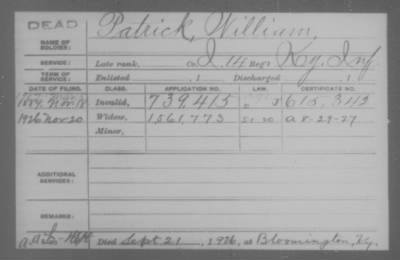 DEAD
Patrick, William,
NAME OF SOLDIER:
SERVICE: Late rank, Co. I, 14 Reg't Ky. Inf.
TERM OF SERVICE: Enlisted , 1 Discharged , 1
DATE OF FILING. CLASS. APPLICATION NO. LAW. CERTIFICATE NO.
Invalid, 739,415 615,342
1926 Nov 20 Widow, 1561,773 A 8-29-27
Minor,
ADDITIONAL SERVICES:
REMARKS:
Died Sept 21, 1926, at Bloomington, Ky.